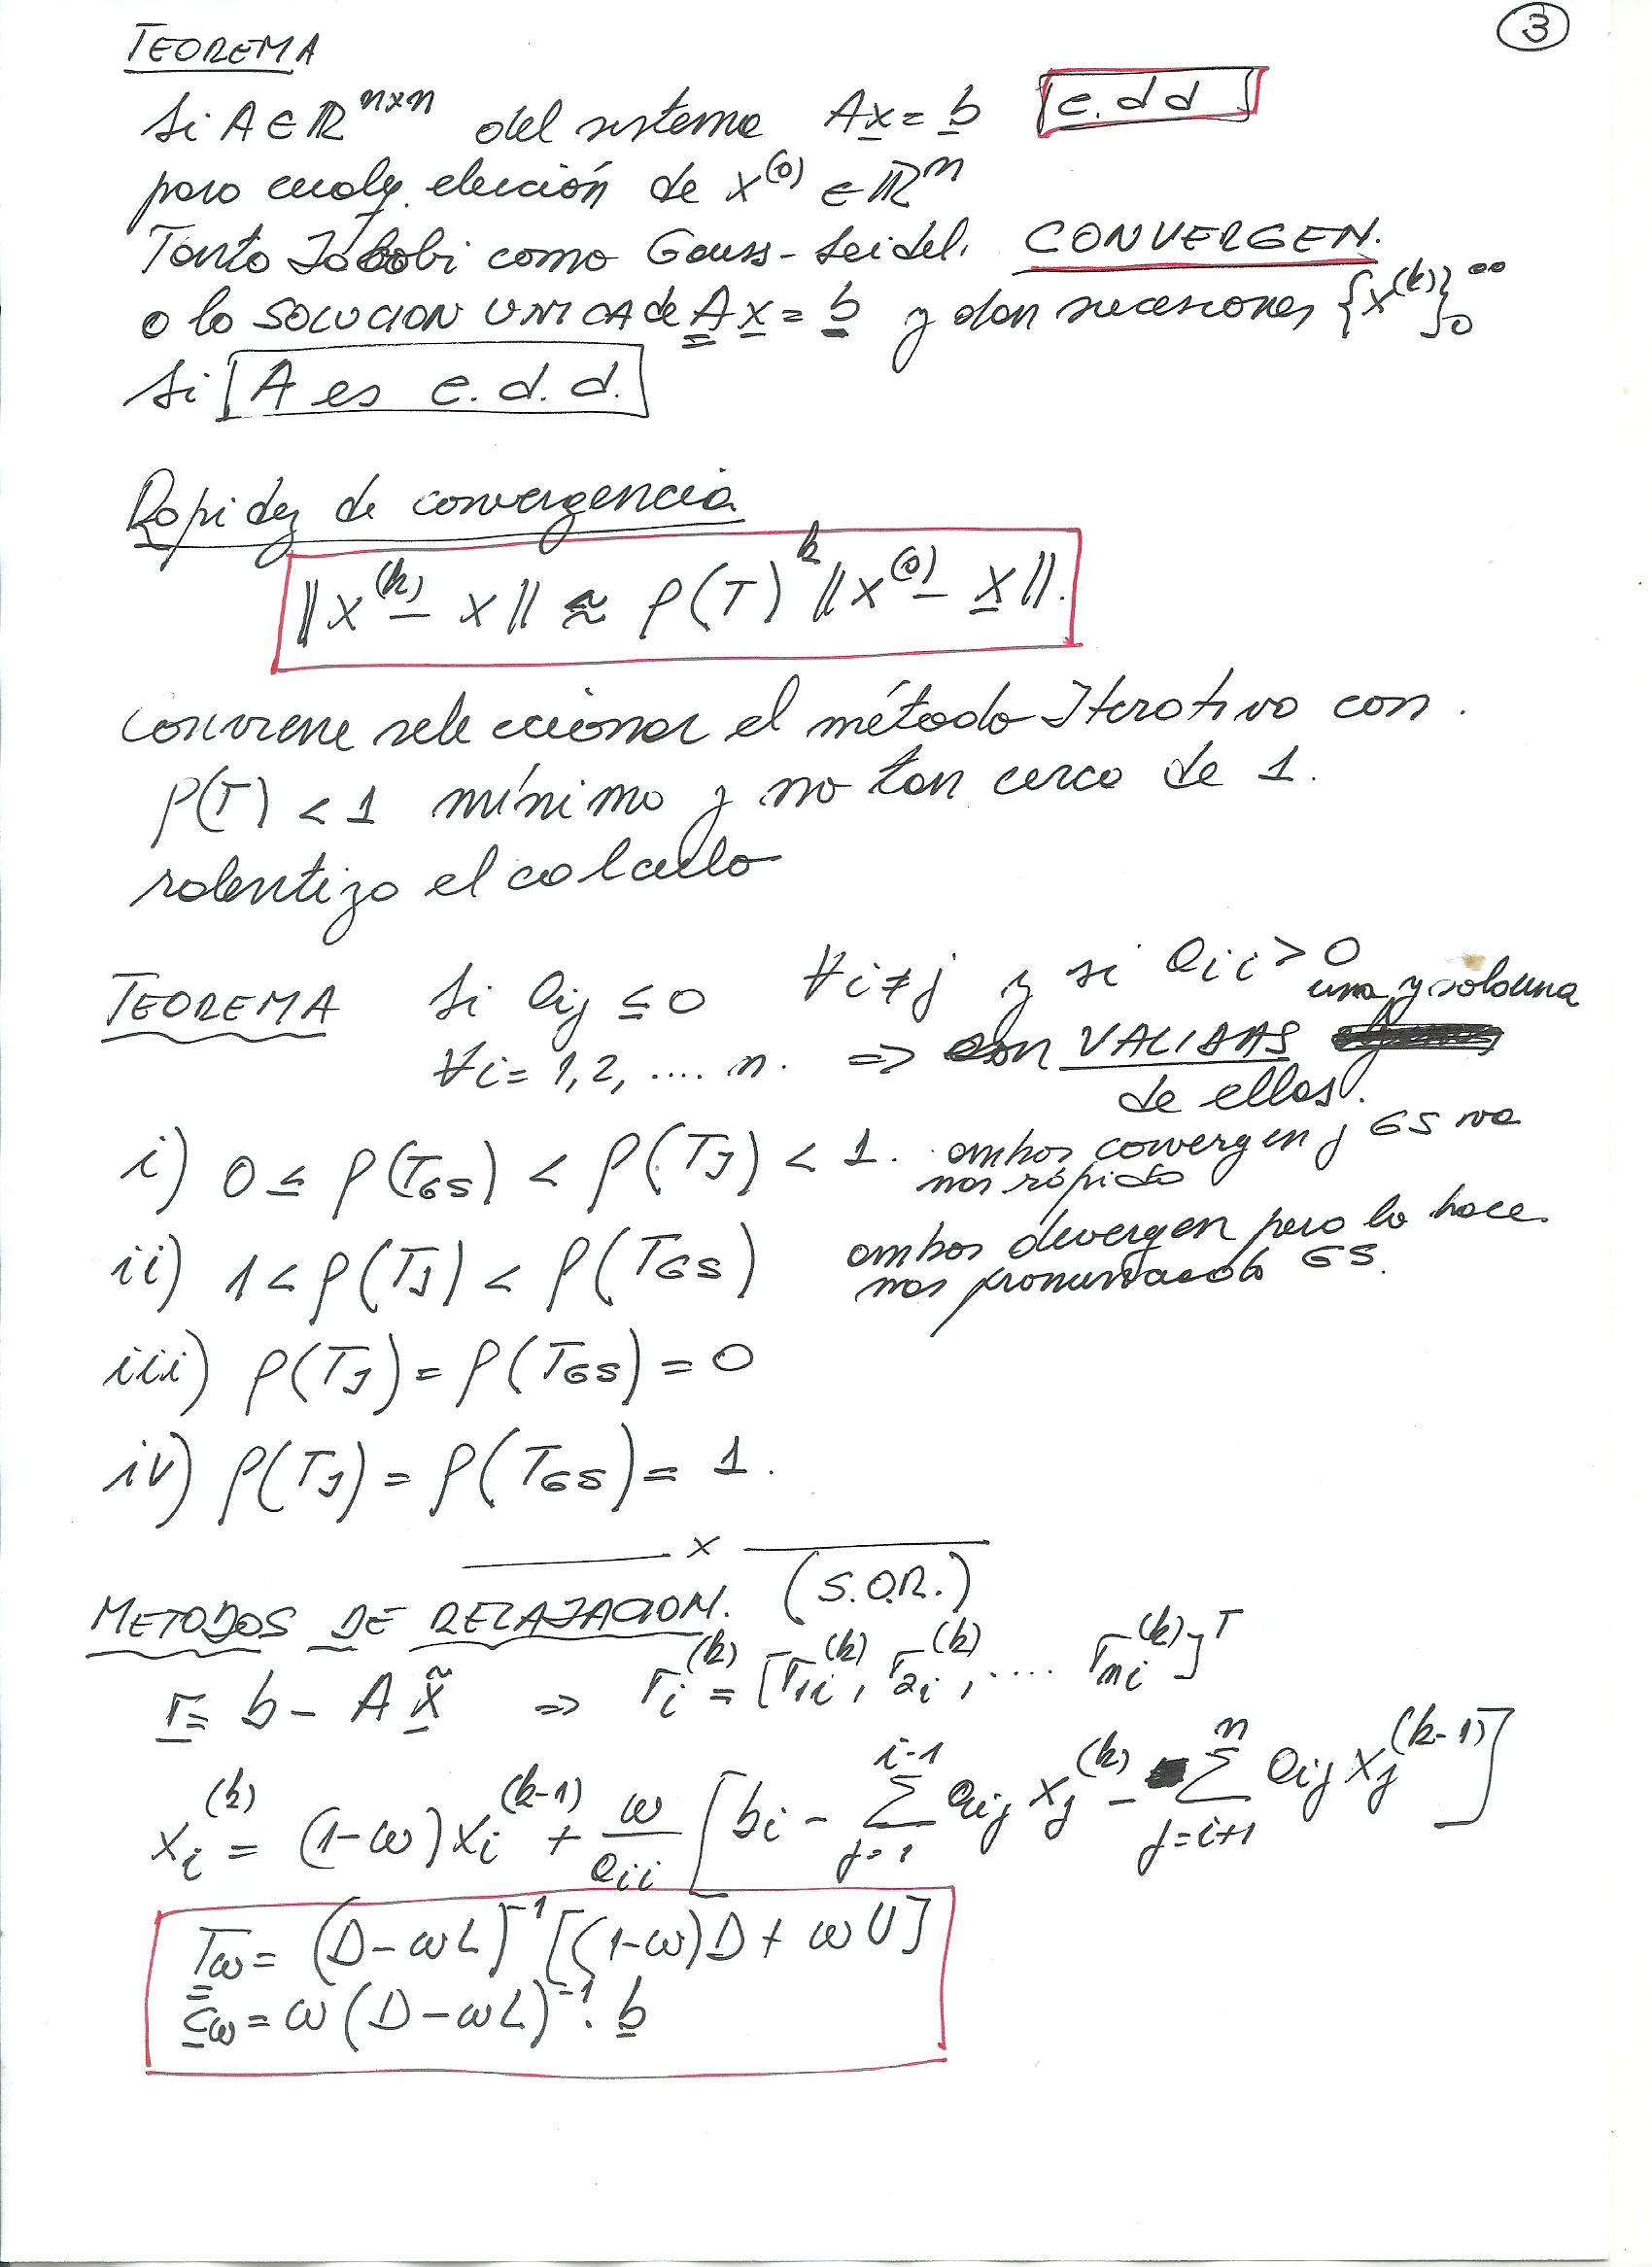 3
TEOREMA
Si A ∈ ℝ^{n×n} del sistema Ax = b [e.d d]
para cualq. elección de x^{(0)} ∈ ℝ^n
Tanto Jacobi como Gauss-Seidel. CONVERGEN.
a la SOLUCION UNICA de A x = b y dan sucesiones {x^{(k)}}_0^∞
Si [A es e.d.d.]
Rapidez de convergencia
‖x^{(k)} - x‖ ≈ ρ(T)^k ‖x^{(0)} - x‖.
conviene seleccionar el método Iterativo con.
ρ(T) < 1 mínimo y no tan cerca de 1.
ralentiza el calculo
TEOREMA Si a_{ij} ≤ 0 ∀i≠j y si a_{ii} > 0
∀i = 1, 2, .... n. ⇒ son VALIDAS una y solo una
de ellas.
i) 0 ≤ ρ(T_{GS}) < ρ(T_J) < 1. ambos convergen y GS va
mas rápido
ii) 1 < ρ(T_J) < ρ(T_{GS}) ambos divergen pero lo hace
mas pronunciado GS.
iii) ρ(T_J) = ρ(T_{GS}) = 0
iv) ρ(T_J) = ρ(T_{GS}) = 1.
x
METODOS DE RELAJACION. (S.O.R.)
r = b - A x̃ ⇒ r_i^{(k)} = [r_{1i}^{(k)}, r_{2i}^{(k)}, .... r_{ni}^{(k)}]^T
x_i^{(k)} = (1-ω)x_i^{(k-1)} + ω/a_{ii} [b_i - Σ_{j=1}^{i-1} a_{ij} x_j^{(k)} - Σ_{j=i+1}^{n} a_{ij} x_j^{(k-1)}]
T_ω = (D-ωL)^{-1} [(1-ω)D + ωU]
c_ω = ω(D-ωL)^{-1} . b